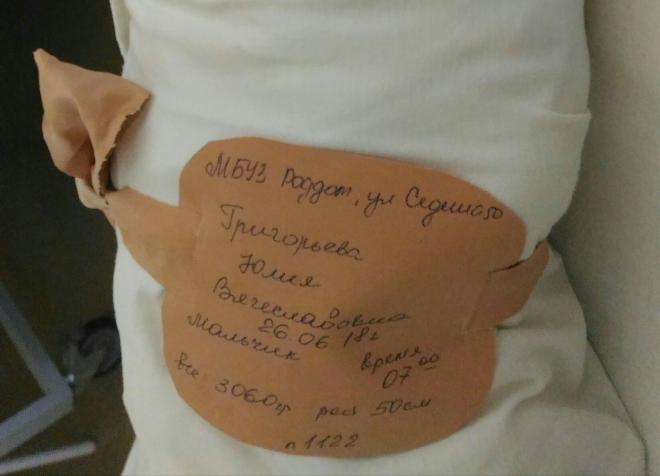 МБУЗ Роддом, ул Седина 50
Григорьева
Юлия
Вячеславовна
26.06.18г
Мальчик
время
07 00
вес 3060гр рост 50см
п 1122